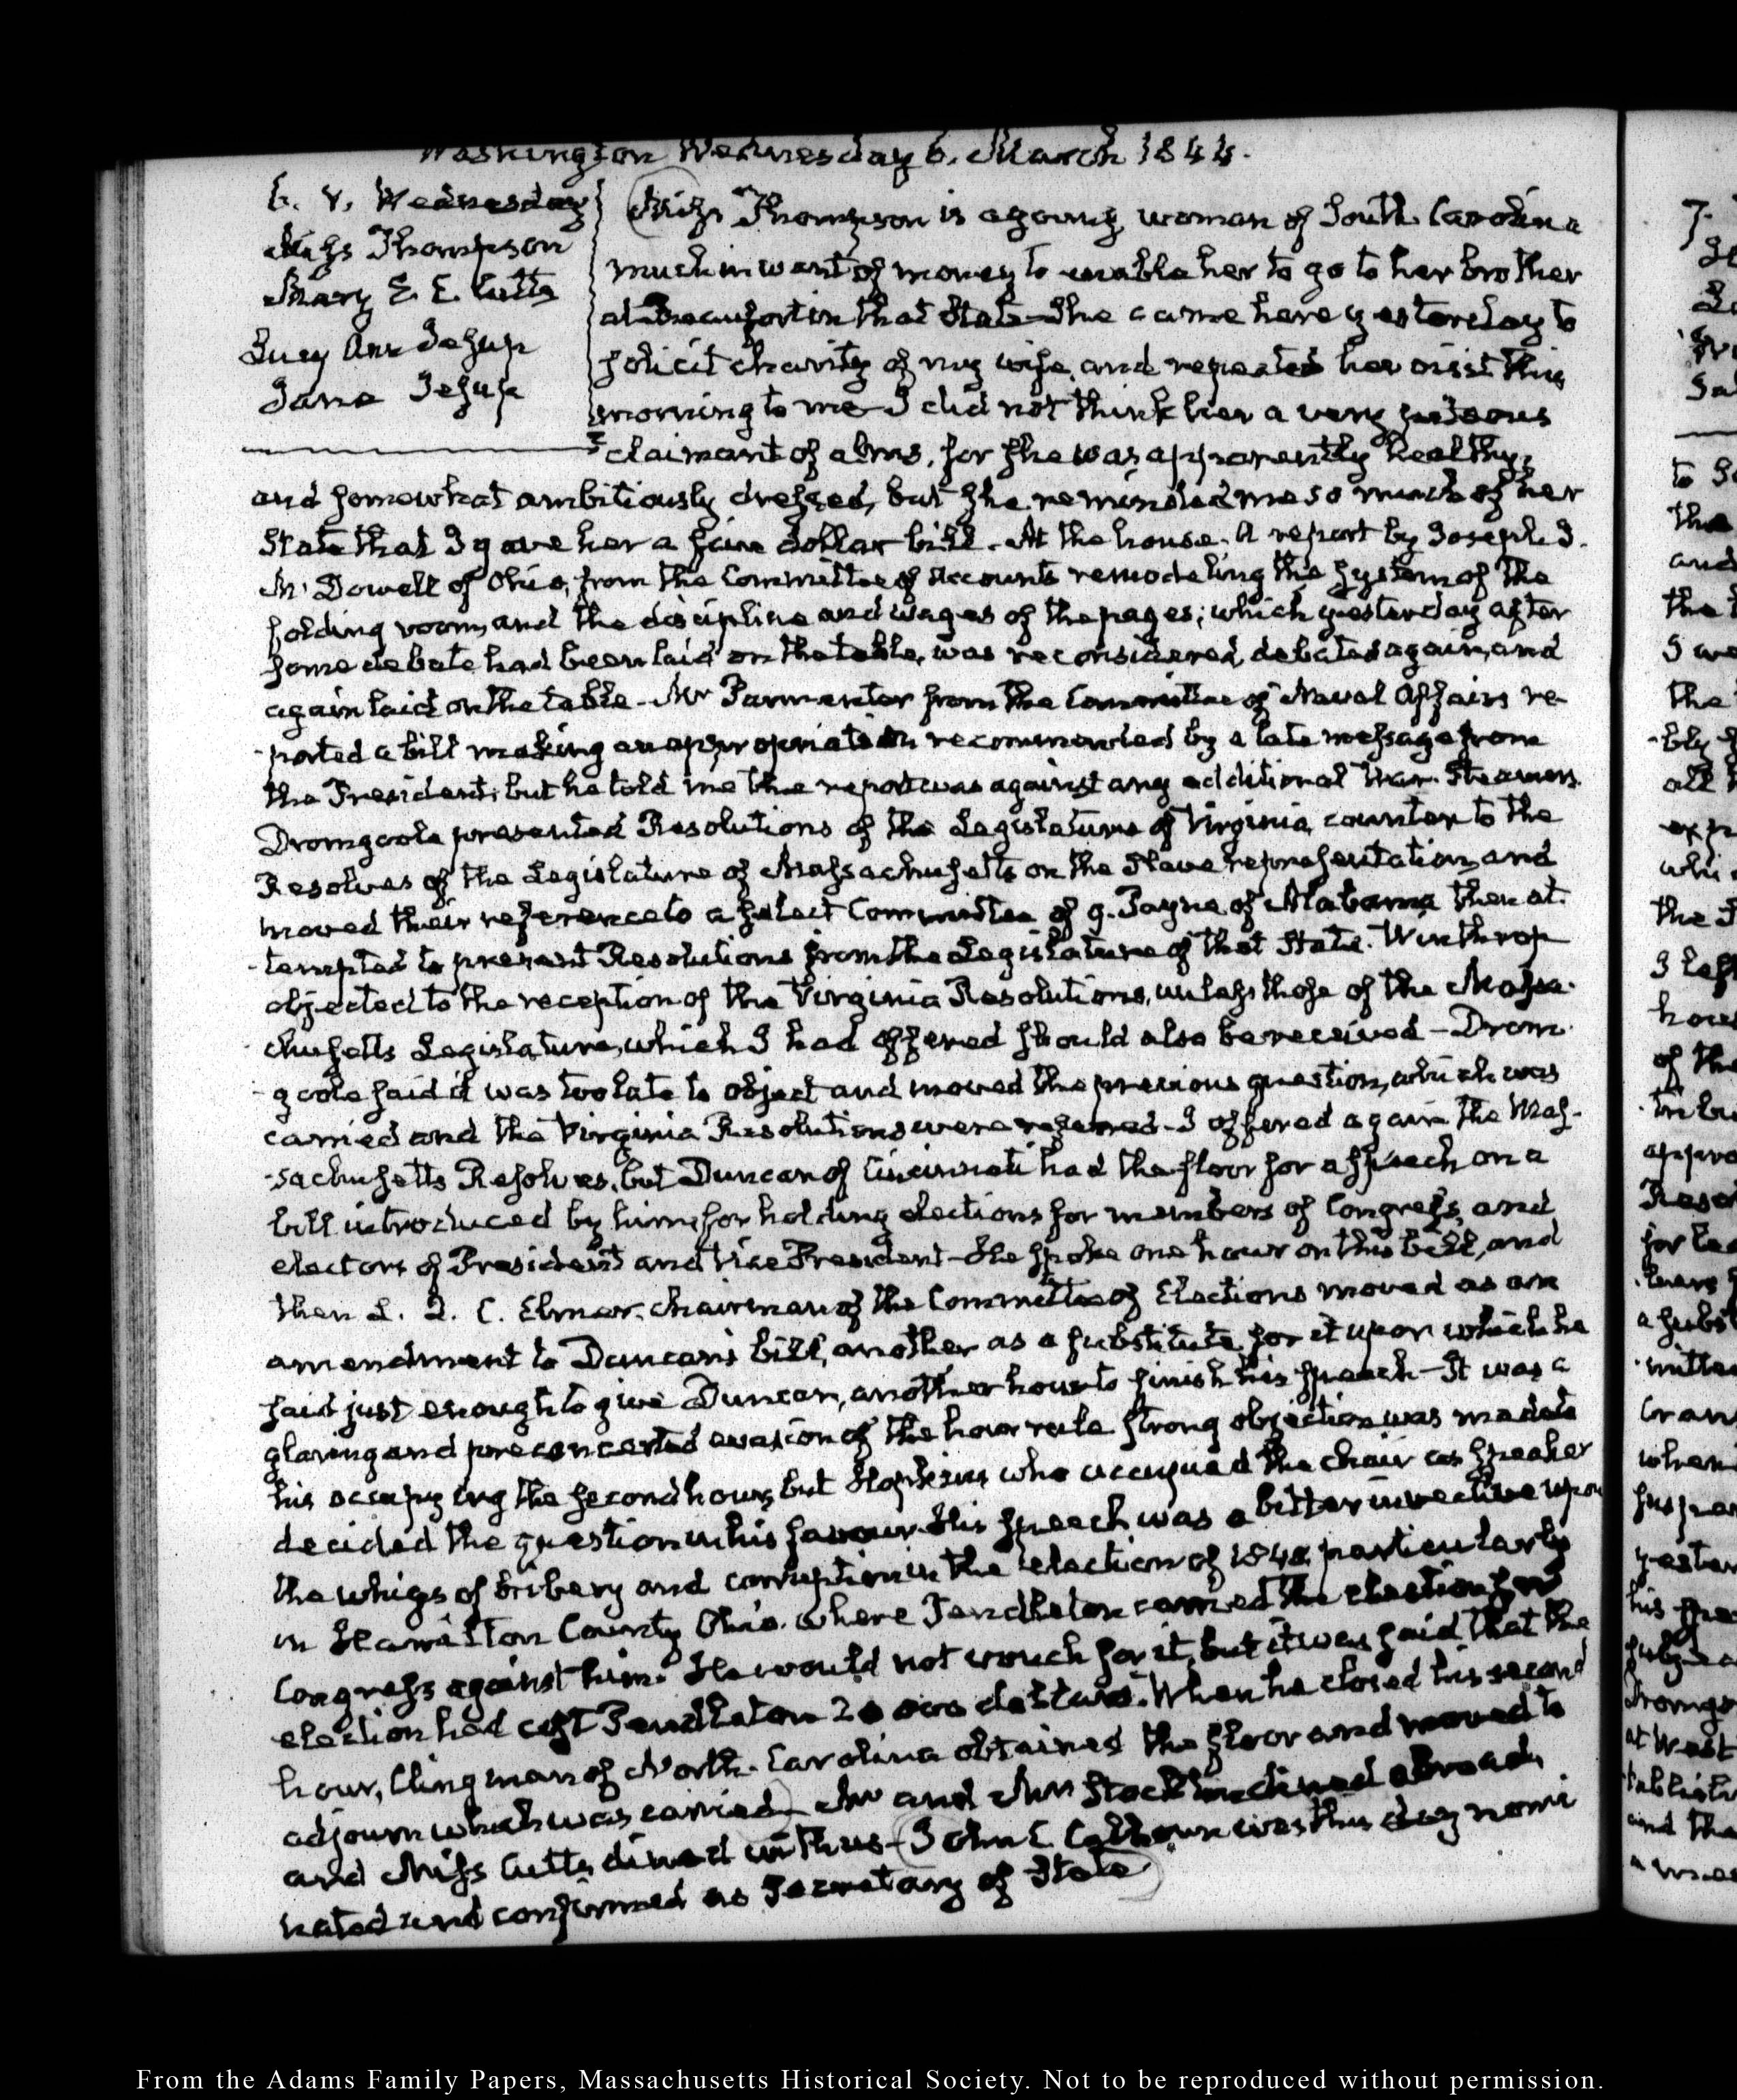 Washington Wednesday 6. March 1844.
6. V. Wednesday
Miss Thompson
Mary E. E. Cutts
Lucy Ann Jesup
Jane Jesup
Miss Thompson is a young woman of South Carolina
much in want of money to enable her to go to her brother
at Beaufort in that State. She came here yesterday to
solicit charity of my wife, and repeated her visit this
morning to me. I did not think her a very piteous
claimant of alms, for she was apparently healthy,
and somewhat ambitiously dressed, but she reminded me so much of her
State that I gave her a five dollar bill. At the house. A report by Joseph J.
McDowell of Ohio, from the Committee of Accounts remodeling the system of the
folding room, and the discipline and wages of the pages; which yesterday after
some debate had been laid on the table, was reconsidered, debated again, and
again laid on the table. Mr Parmenter from the Committee of Naval Affairs re-
-ported a bill making an appropriation recommended by a late message from
the President; but he told me the report was against any additional War Steamers.
Dromgoole presented Resolutions of the Legislature of Virginia, counter to the
Resolves of the Legislature of Massachusetts on the Slave representation, and
moved their reference to a select Committee of 9. Payne of Alabama then at-
-tempted to present Resolutions from the Legislature of that State. Winthrop
objected to the reception of the Virginia Resolutions, unless those of the Massa-
-chusetts Legislature, which I had offered should also be received — Drom-
-goole said it was too late to object and moved the previous question, which was
carried and the Virginia Resolutions were referred. I offered again the Mas-
-sachusetts Resolves, but Duncan of Cincinnati had the floor for a speech on a
bill introduced by him, for holding elections for members of Congress, and
electors of President and Vice President. He spoke one hour on this bill, and
then L. Q. C. Elmer, chairman of the Committee of Elections moved as an
amendment to Duncan's bill, another as a substitute for it upon which he
said just enough to give Duncan, another hour to finish his speech — It was a
glaring and preconcerted evasion of the hour rule. Strong objection was made to
his occupying the second hour, but Hopkins who occupied the chair as Speaker
decided the question in his favour. His speech was a bitter invective upon
the whigs of bribery and corruption in the election of 1840, particularly
in Hamilton County Ohio, where Pendleton carried the election for
Congress against him. He would not vouch for it, but it was said that the
election had cost Pendleton 20 000 dollars. When he closed his second
hour, Clingman of North-Carolina obtained the floor and moved to
adjourn which was carried. Mr and Mrs dined abroad,
and Miss Cutts dined with us. John C. Calhoun was this day nomi
nated and confirmed as Secretary of State